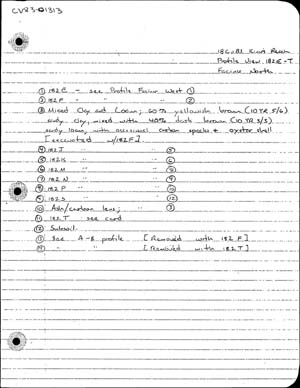 CV83-01313
18CV83 King's Reach
Profile View: 182E-T
Facing North
① 182E - see Profile Facing West ①
② 182F " " ②
③ Mixed Clay and Loam; 60% yellowish brown (10YR 5/6)
sandy clay, mixed with 40% dark brown (10YR 3/3)
sandy loam, with occasional carbon specks + oyster shell
[excavated w/182F]
④ 182J " ⑤
⑤ 182K " ⑥
⑥ 182M "
⑦ 182N "
⑧ 182P " ⑩
⑨ 182S " ⑫
⑩ Ash/carbon lens; " ③
⑪ 182T see card
⑫ Subsoil
⑬ See A-B profile [Removed with 182F]
⑭ " " [Removed with 182T]